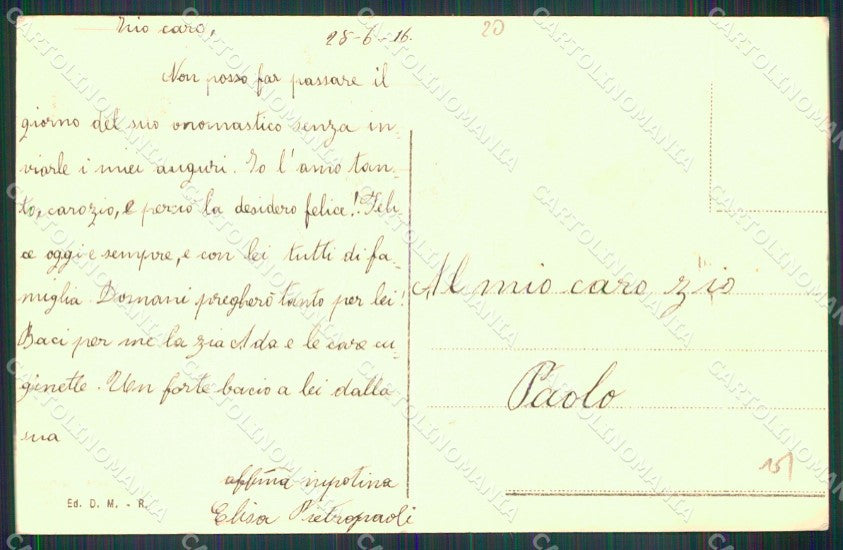 Zio caro,
28-6-16.
20
Non posso far passare il
giorno del suo onomastico senza in-
viarle i miei auguri. Io l'amo tan-
to, caro zio, e perciò la desidero felice! Feli-
ce oggi e sempre, e con lei tutti di fa-
miglia. Domani pregherò tanto per lei!
Baci per me la zia Ada e le care cu-
ginette. Un forte bacio a lei dalla
sua
affma nipotina
Elisa Pietropaoli
Ed. D. M. - R.
Al mio caro zio
Paolo
15/
CARTOLINOMANIA